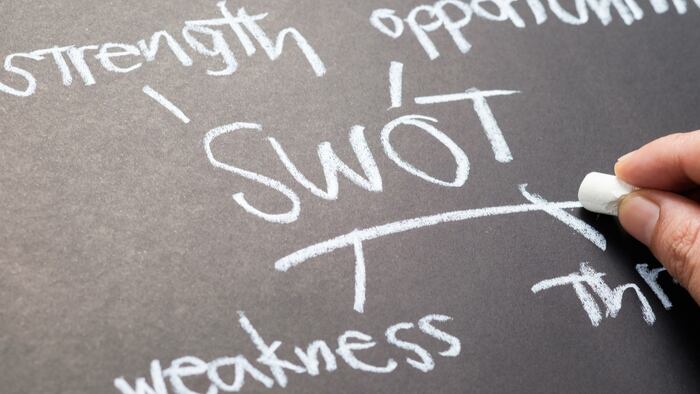 strength opportunit
SWOT
weakness Thr